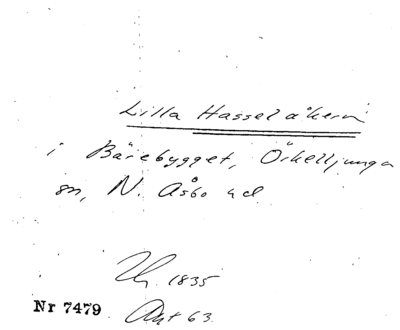 Lilla Hasselåkern
i Bärebygget, Örkelljunga
sn, N. Åsbo hd
1835
Nr 7479 Akt 63.